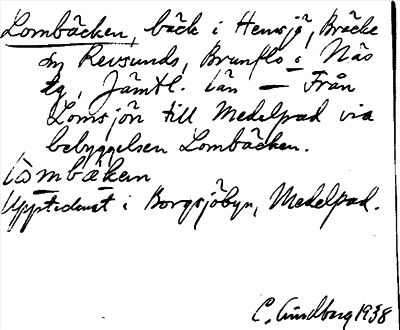 Lombäcken, bäck i Hemsjö, Bräcke
sn, Revsunds, Brunflo o. Näs
tg, Jämtl. län — Från
Lomsjön till Medelpad via
bebyggelsen Lombäcken.
lómbǟken
Uppteckn. i Borgsjöbyn, Medelpad.
C. Lindberg 1938